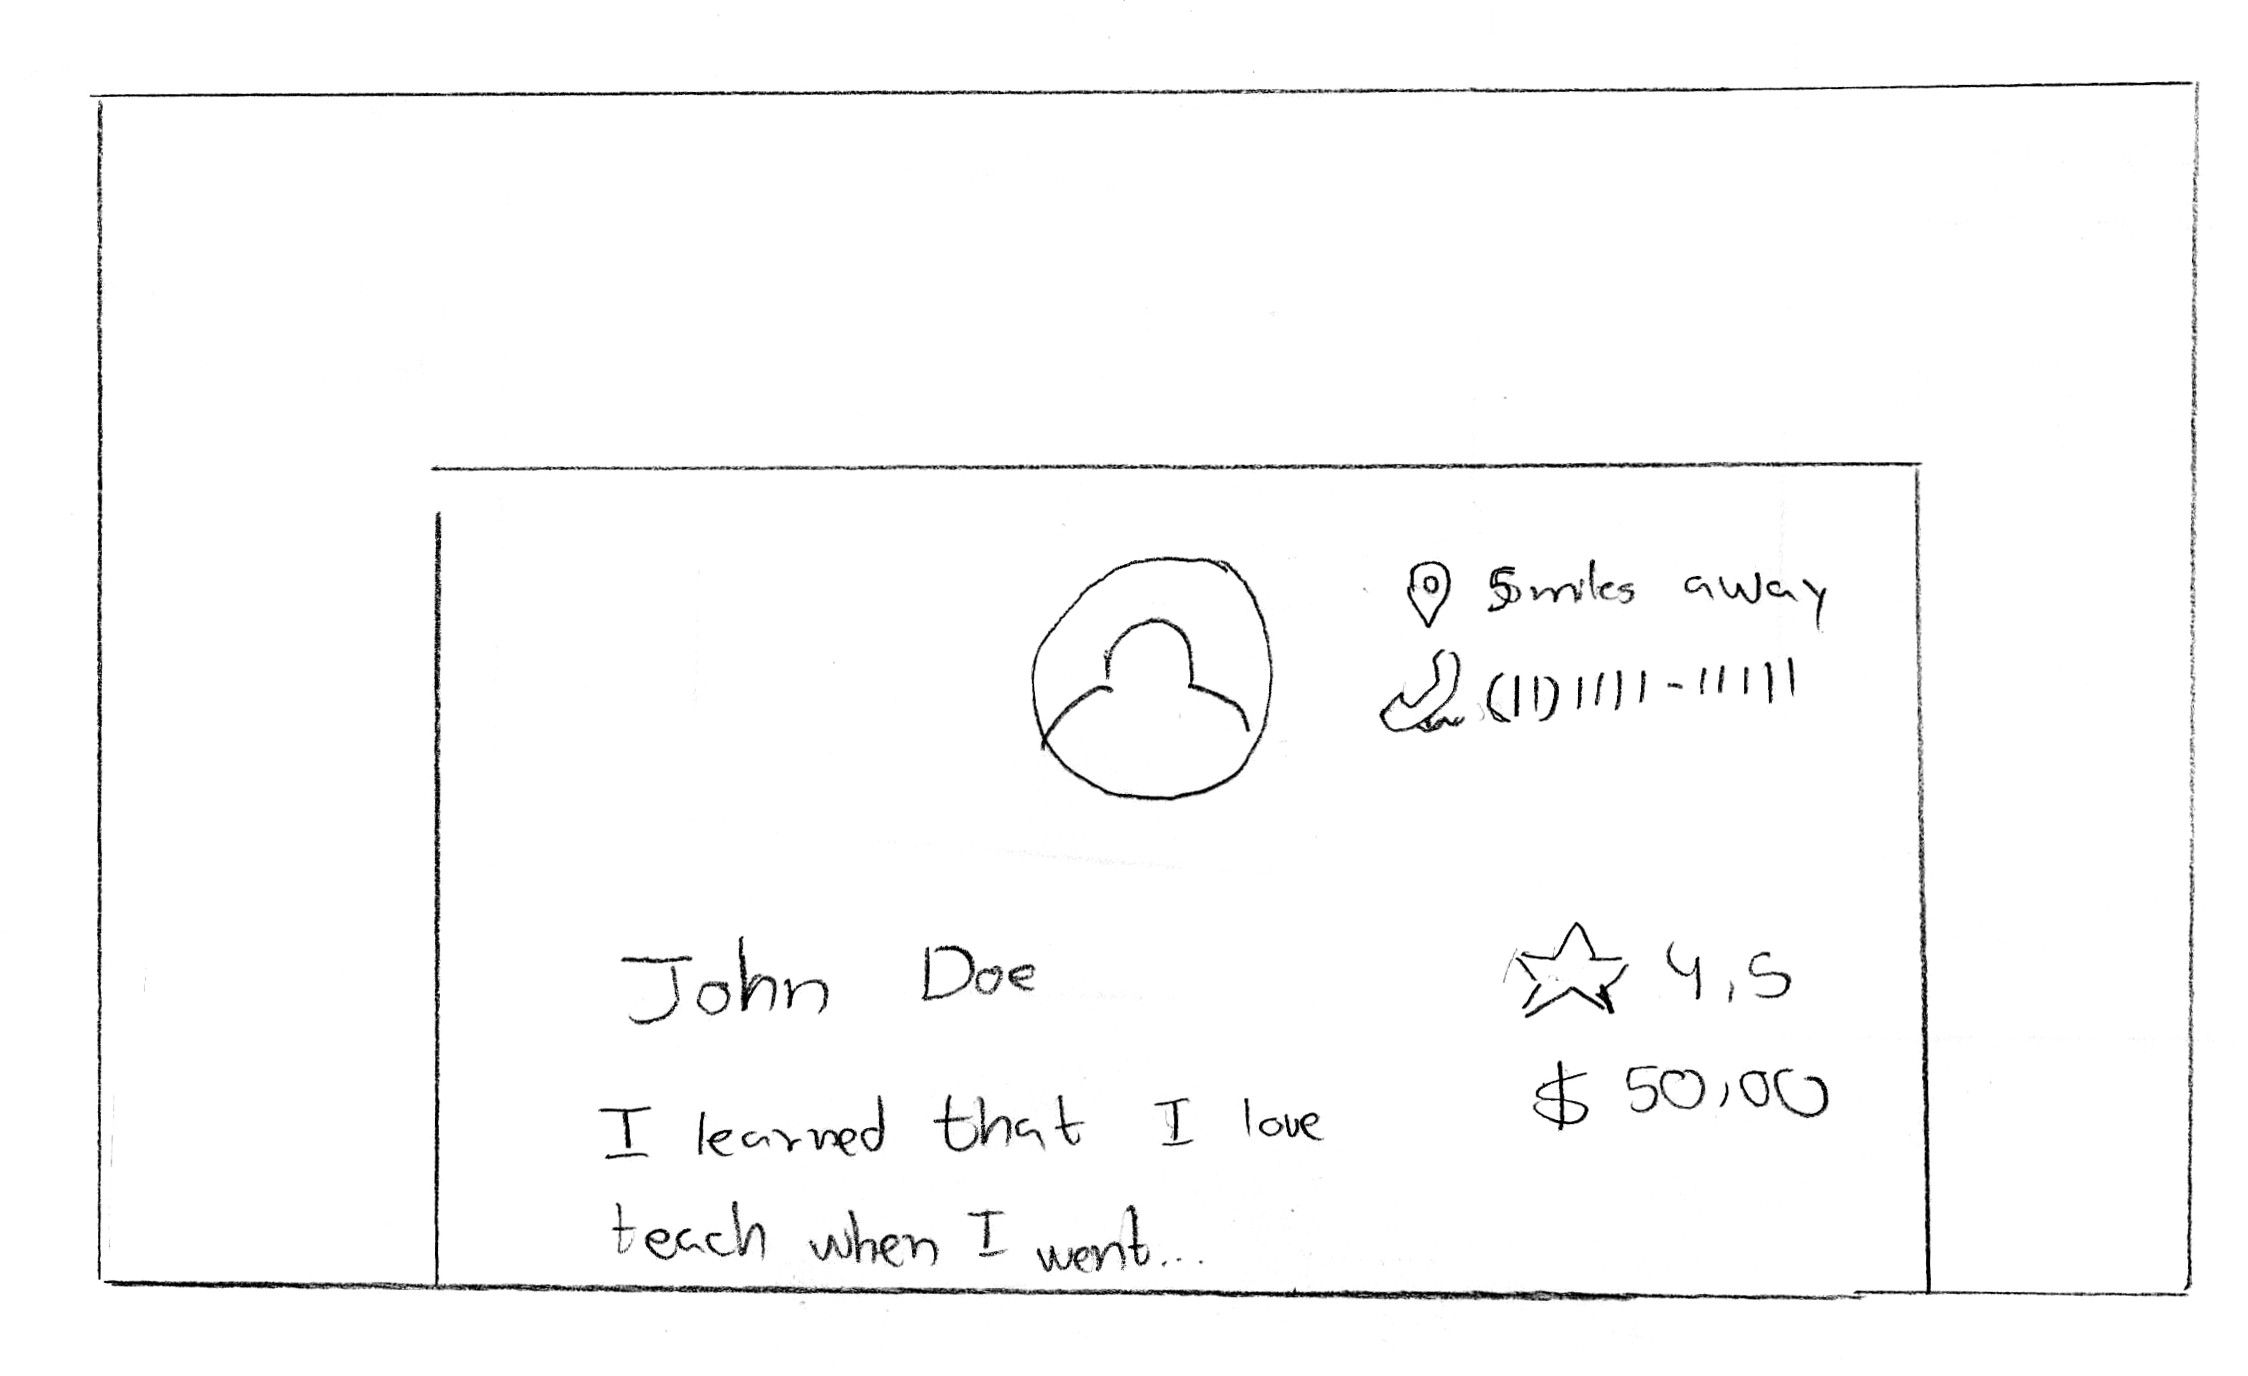 5miles away
(11) 1111-11111
John Doe
4,5
$ 50,00
I learned that I love
teach when I went...